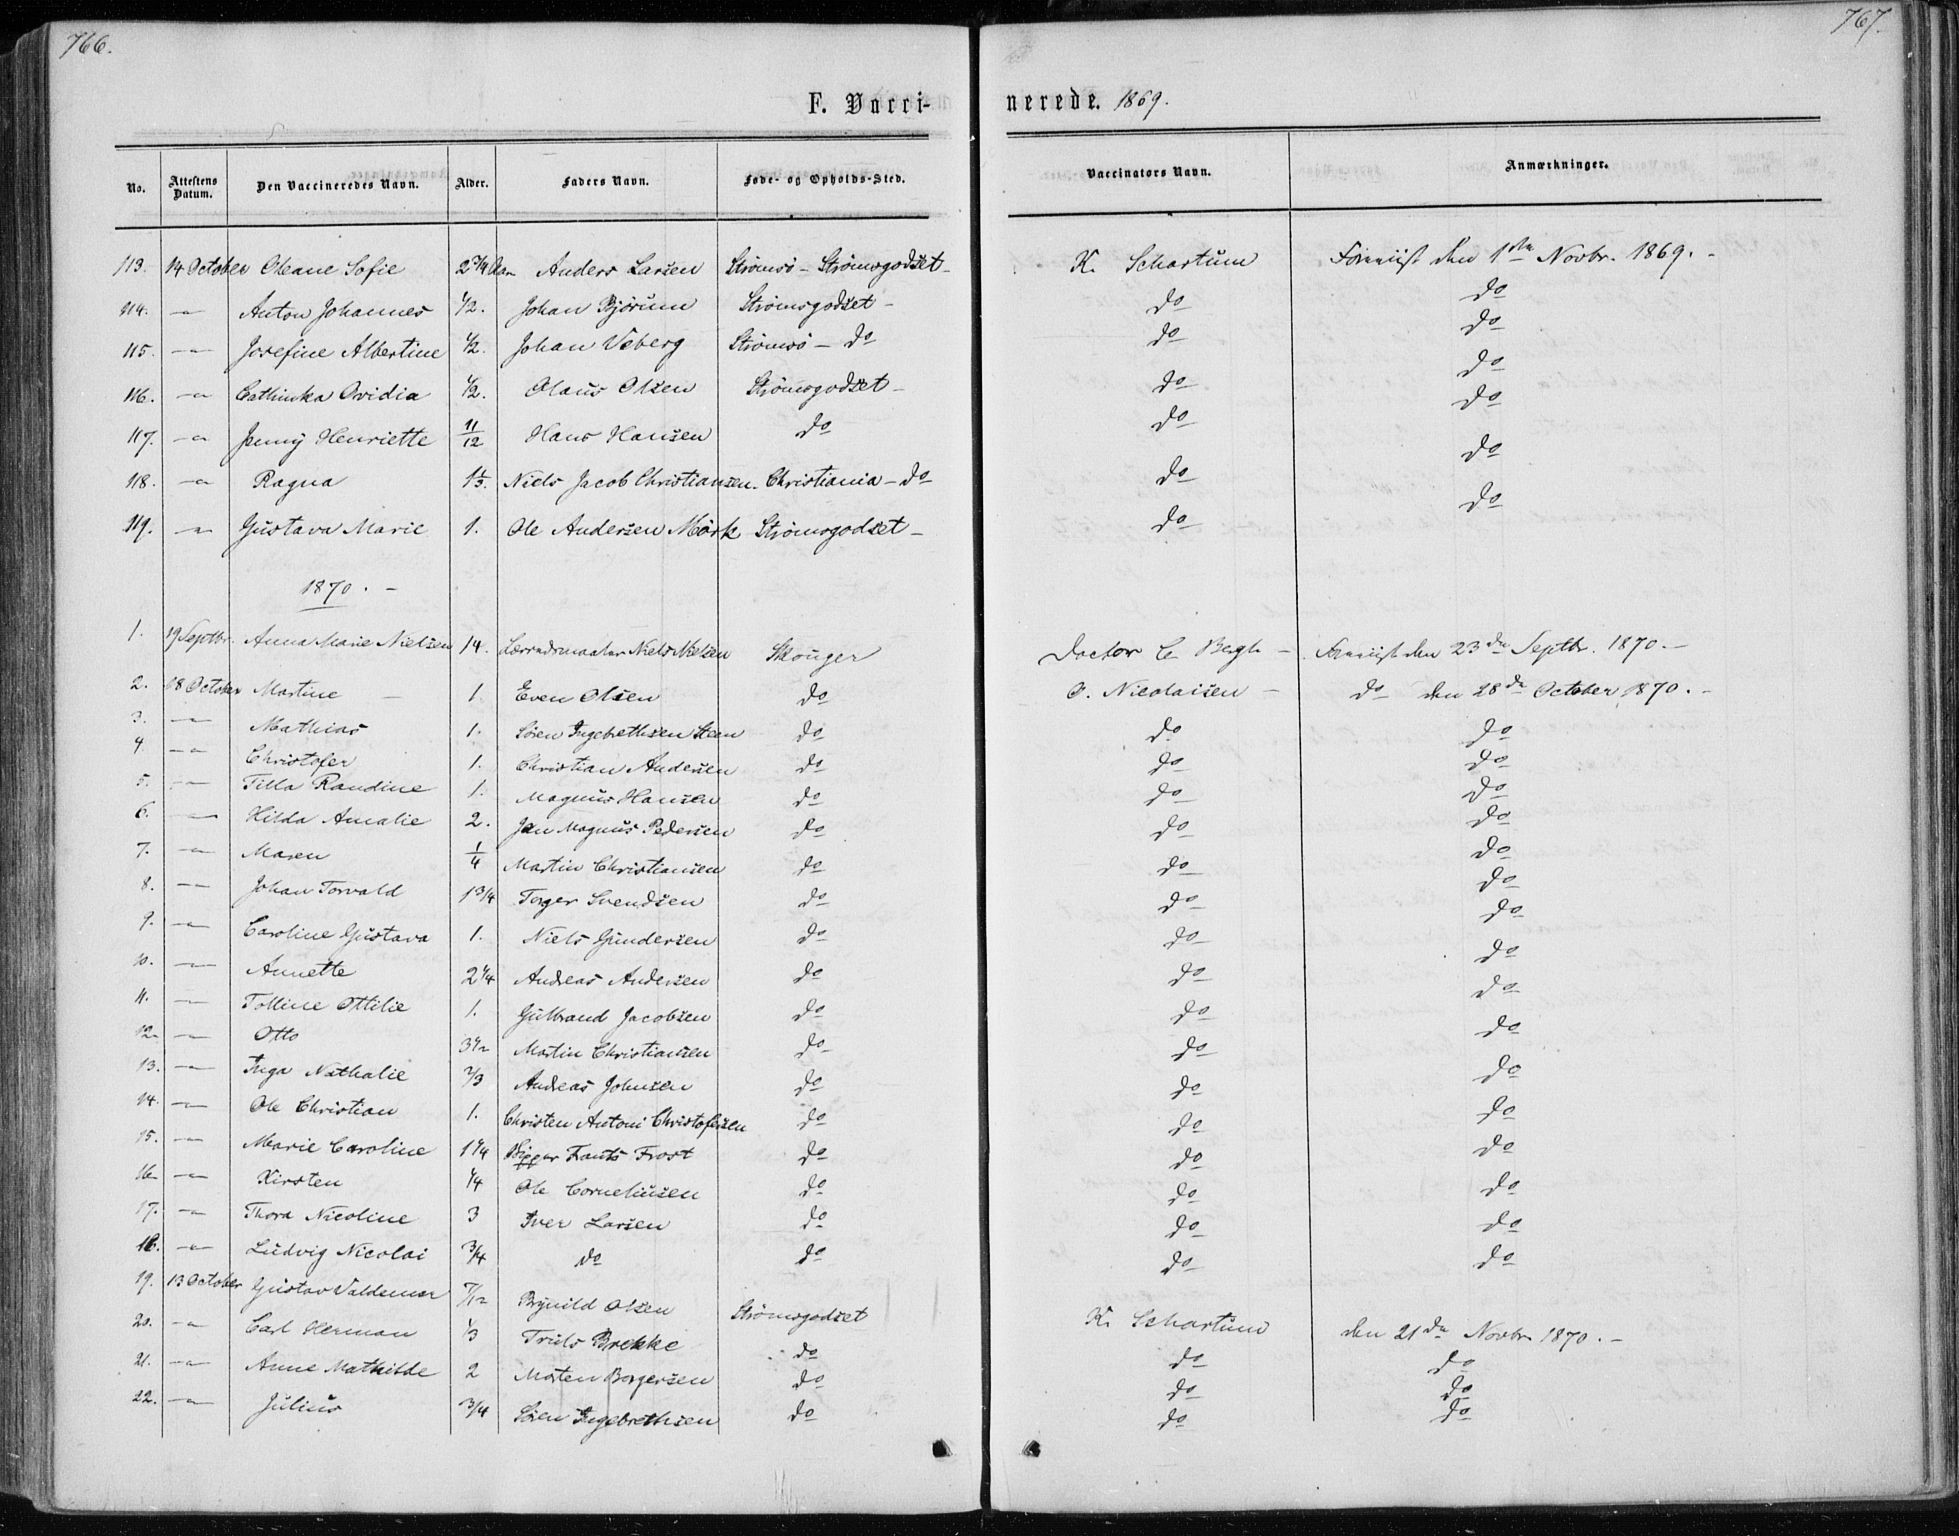 766.
767.
F. Vacci-
nerede. 1869.
No. Attestens Datum. Den Vaccineredes Navn. Alder. Faders Navn. Føde- og Opholds-Sted. Vaccinators Navn. Anmærkninger.
113. 14 October Oleane Sofie 2 3/4 Anders Larsen Strömsö - Strömsgodset - K. Schartum den 1ste Novbr. 1869. -
114. - Anton Johannes 1/2. Johan Bjørum Strömsgodset - do do
115. - Josefine Albertine 1/2. Johan Veberg Strömsö - do do do
116. - Cathinka Ovidia 1/2. Olaus Olsen Strömsgodset - do do
117. - Jenny Henriette 11/12 Hans Hansen do do do
118. - Ragna 1 1/5. Niels Jacob Christiansen. Christiania - do do do
119. - Gustava Marie 1. Ole Andersen Mörk Strömsgodset - do do
1870. -
1. 19 Septbr. Anna Marie Nielsen 14. Niels Nielsen Skouger Doctor C. Bergh - den 23de Septbr. 1870. -
2. 18 October Martine - 1. Even Olsen do O. Nicolaisen - do den 28de October 1870. -
3. - Mathias 1. Sören Ingebrethsen Steen do do do
4. - Christofer 1. Christian Andersen do do do
5. - Tilla Randine 1. Magnus Hansen do do do
6. - Hilda Amalie 2. Jan Magnus Pedersen do do do
7. - Maren 1/4 Martin Christiansen do do do
8. - Johan Torvald 1 3/4 Torger Svendsen do do do
9. - Caroline Gustava 1. Niels Gundersen do do do
10. - Annette 2 1/4 Andreas Andersen do do do
11. - Tolline Ottilie 1. Gulbrand Jacobsen do do do
12. - Otto 3 1/2 Martin Christiansen do do do
13. - Inga Nathalie 2/3 Andreas Johnsen do do do
14. - Ole Christian 1. Christen Antoni Christofersen do do do
15. - Marie Caroline 1 1/4 Frants Frost do do do
16. - Kirsten 1/4 Ole Corneliusen do do do
17. - Thora Nicoline 3 Iver Larsen do do do
18. - Ludvig Nicolai 3/4 do do do do
19. 13 October Gustav Valdemar 7/12 Brynild Olsen Strömsgodset K. Schartum den 21de Novbr. 1870. -
20. - Carl Herman 1/3 Truls Brekke do do do
21. - Anne Mathilde 2 Morten Borgersen do do do
22. - Julius 3/4 Sören Ingebrethsen do do do